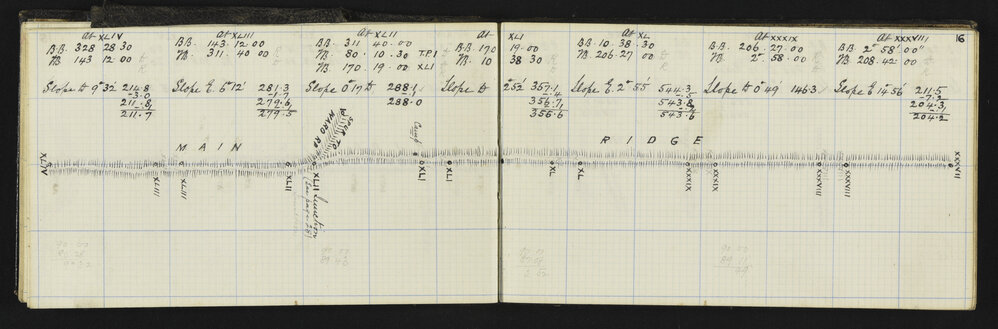 At XLIV
B.B. 328 28 30
F.B. 143 12 00
Slope D 9° 32' 214.8
3.0
211.8
.1
211.7
At XLIII
B.B. 143. 12. 00
F.B. 311. 40. 00
Slope E. 6° 12' 281.3
1.7
279.6
.1
279.5
At XLII
B.B. 311 40. 00
F.B. 80. 10. 30 T.P.1
F.B. 170. 19. 00 XLI
Slope D 17' D 288.1
.1
288.0
At XLI
B.B. 170 19. 00
F.B. 10 38 30
Slope D 2° 52' 357.1
.4
356.7
.1
356.6
At XL
B.B. 10. 38. 30
F.B. 206. 27. 00
Slope E. 2° 55' 544.3
.5
543.8
543.6
At XXXIX
B.B. 206. 27. 00
F.B. 2°. 58. 00
Slope D 0° 49' 146.3
At XXXVIII 16
B.B. 2° 58' 00"
F.B. 208. 42. 00
Slope E 14° 56' 211.5
7.2
204.3
.1
204.2
MAIN
SPUR TO
Camp
RIDGE
XLIII
XLIII
XLII
XLII Junction
XLI
XLI
XL
XL
XXXIX
XXXIX
XXXVIII
XXXVIII
XXXVII